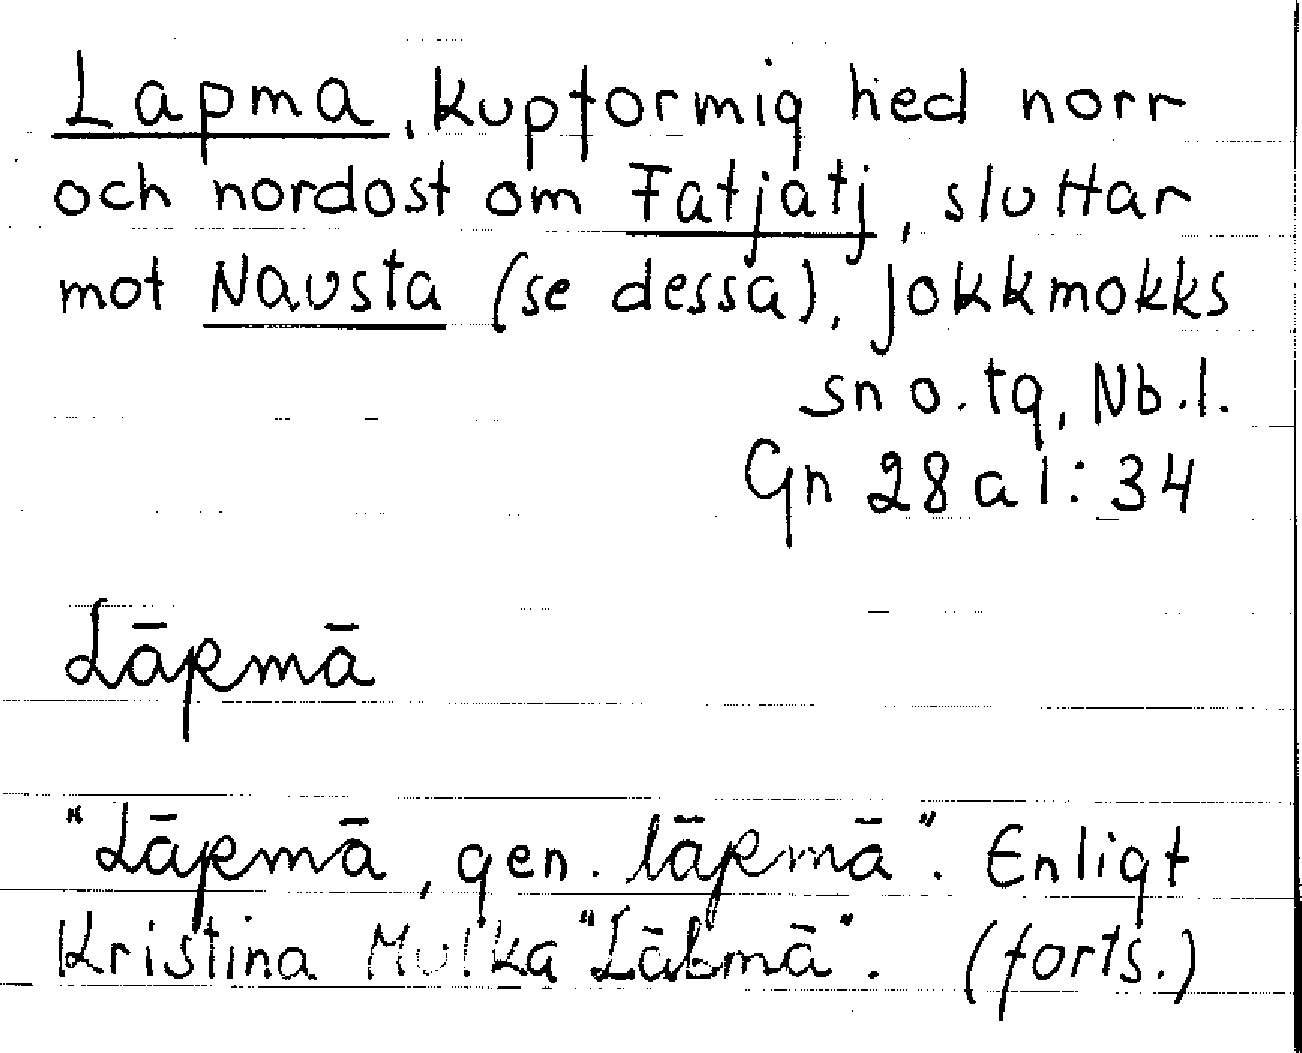 Lapma, kupformig hed norr
och nordost om Fatjatj, sluttar
mot Nausta (se dessa), Jokkmokks
sn o. tg, Nb.l.
Gn 28 a 1:34
Lāpmā
"Lāpmā, gen. lāpmā". Enligt
Kristina Mulka "Lābmā". (forts.)